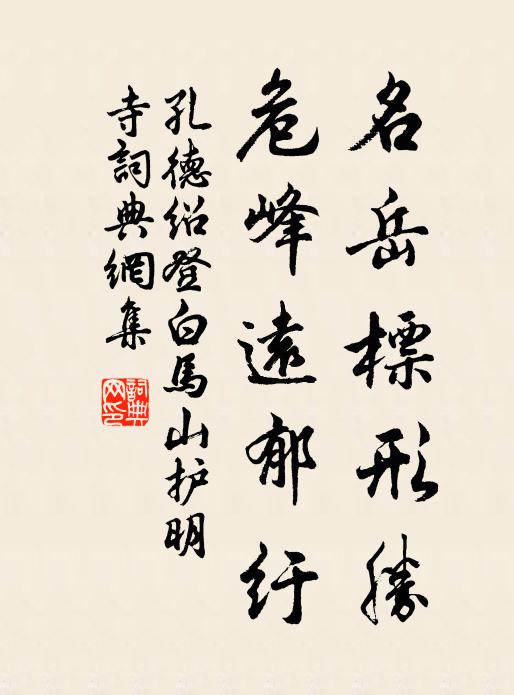 名岳標形勝
危峰遠郁紆
孔德绍登白馬山护明
寺詞典網集
詞典网印